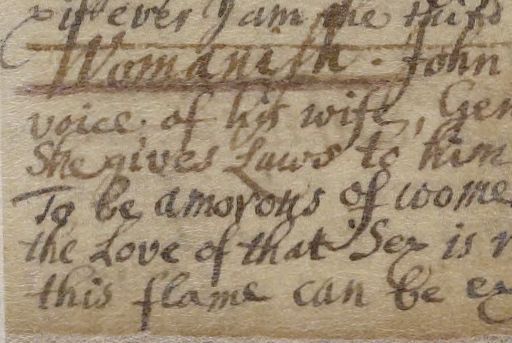 if ever I am the third
Womanish. John
voice of his wife, Gen
She gives Laws to him
To be amorous of wome
the Love of that Sex is r
this flame can be ex